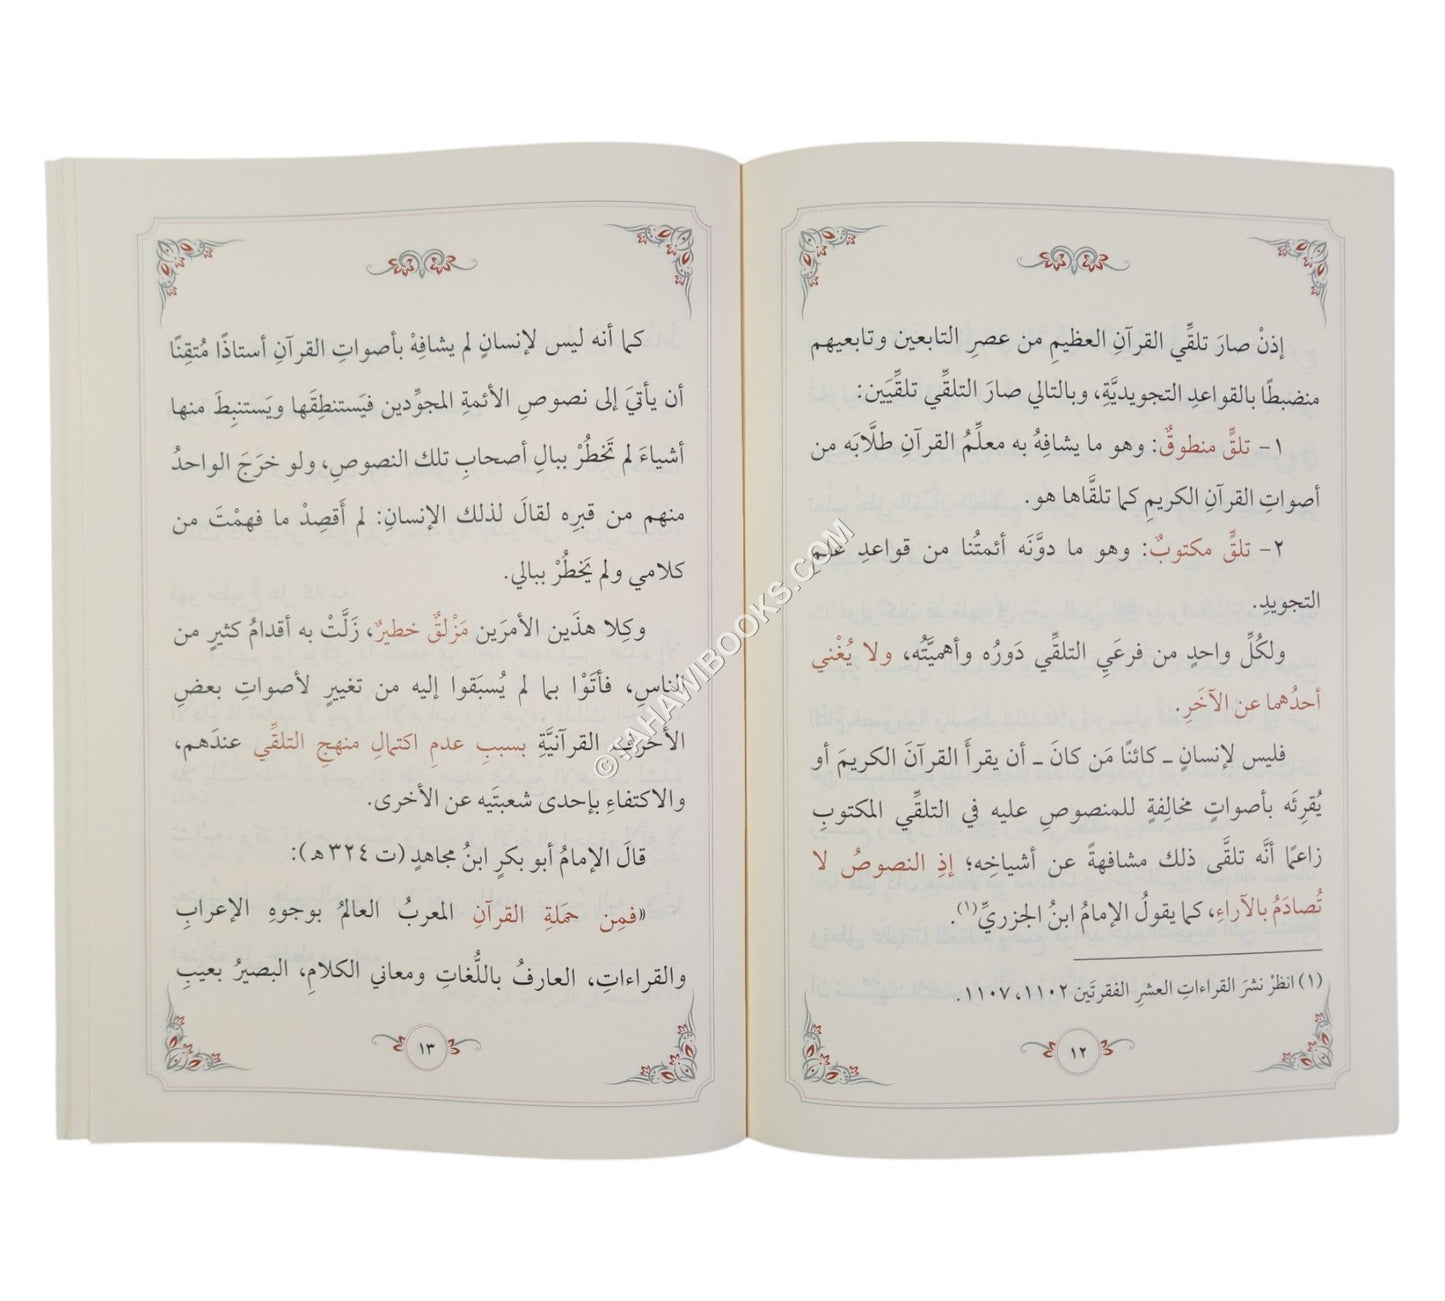 إذنْ صارَ تلقِّي القرآنِ العظيمِ من عصرِ التابعين وتابعيهم
منضبطًا بالقواعدِ التجويديَّةِ، وبالتالي صارَ التلقِّي تلقِّيَين:
١- تلقٍّ منطوقٌ: وهو ما يشافِهُ به معلِّمُ القرآنِ طلَّابَه من
أصواتِ القرآنِ الكريمِ كما تلقَّاها هو.
٢- تلقٍّ مكتوبٌ: وهو ما دوَّنَه أئمتُنا من قواعدِ علمِ
التجويدِ.
ولكُلِّ واحدٍ من فرعَيِ التلقِّي دَورُه وأهميَّتُه، ولا يُغْني
أحدُهما عن الآخَرِ.
فليس لإنسانٍ ـ كائنًا مَن كانَ ـ أن يقرأَ القرآنَ الكريمَ أو
يُقرِئَه بأصواتٍ مخالِفةٍ للمنصوصِ عليه في التلقِّي المكتوبِ
زاعمًا أنَّه تلقَّى ذلك مشافهةً عن أشياخِه؛ إذِ النصوصُ لا
تُصادَمُ بالآراءِ، كما يقولُ الإمامُ ابنُ الجزريِّ(١).
(١) انظرْ نشرَ القراءاتِ العشرِ الفقرتَين ١١٠٢، ١١٠٧.
١٢
كما أنه ليس لإنسانٍ لم يشافِهْ بأصواتِ القرآنِ أستاذًا مُتقِنًا
أن يأتيَ إلى نصوصِ الأئمةِ المجوِّدين فيَستنطِقَها ويَستنبِطَ منها
أشياءَ لم تَخطُرْ ببالِ أصحابِ تلك النصوصِ، ولو خرَجَ الواحدُ
منهم من قبرِه لقالَ لذلك الإنسانِ: لم أَقصِدْ ما فهمْتَ من
كلامي ولم يَخطُرْ ببالي.
وكِلا هذَين الأمرَين مَزْلقٌ خطيرٌ، زَلَّتْ به أقدامُ كثيرٍ من
الناسِ، فأتَوْا بما لم يُسبَقوا إليه من تغييرٍ لأصواتِ بعضِ
الأحرفِ القرآنيَّةِ بسببِ عدمِ اكتمالِ منهجِ التلقِّي عندَهم،
والاكتفاءِ بإحدى شعبتَيه عن الأخرى.
قالَ الإمامُ أبو بكرٍ ابنُ مجاهدٍ (ت ٣٢٤ هـ):
«فمِن حمَلةِ القرآنِ المعربُ العالمُ بوجوهِ الإعرابِ
والقراءاتِ، العارفُ باللُّغاتِ ومعاني الكلامِ، البصيرُ بعيبِ
١٣
©TAHAWIBOOKS.COM